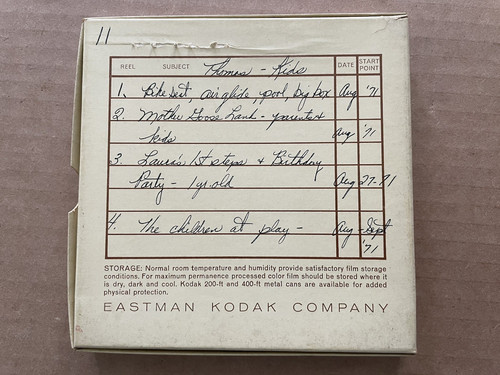 11
REEL SUBJECT Thomas - Kids DATE START POINT
1. Bike seat, air glide, pool, big box Aug '71
2. Mother Goose Land - parents &
kids Aug '71
3. Laura's 1st steps & Birthday
Party - 1 yr. old Aug 27-71
4. The children at play - Aug-Sept
'71
STORAGE: Normal room temperature and humidity provide satisfactory film storage
conditions. For maximum permanence processed color film should be stored where it
is dry, dark and cool. Kodak 200-ft and 400-ft metal cans are available for added
physical protection.
EASTMAN KODAK COMPANY